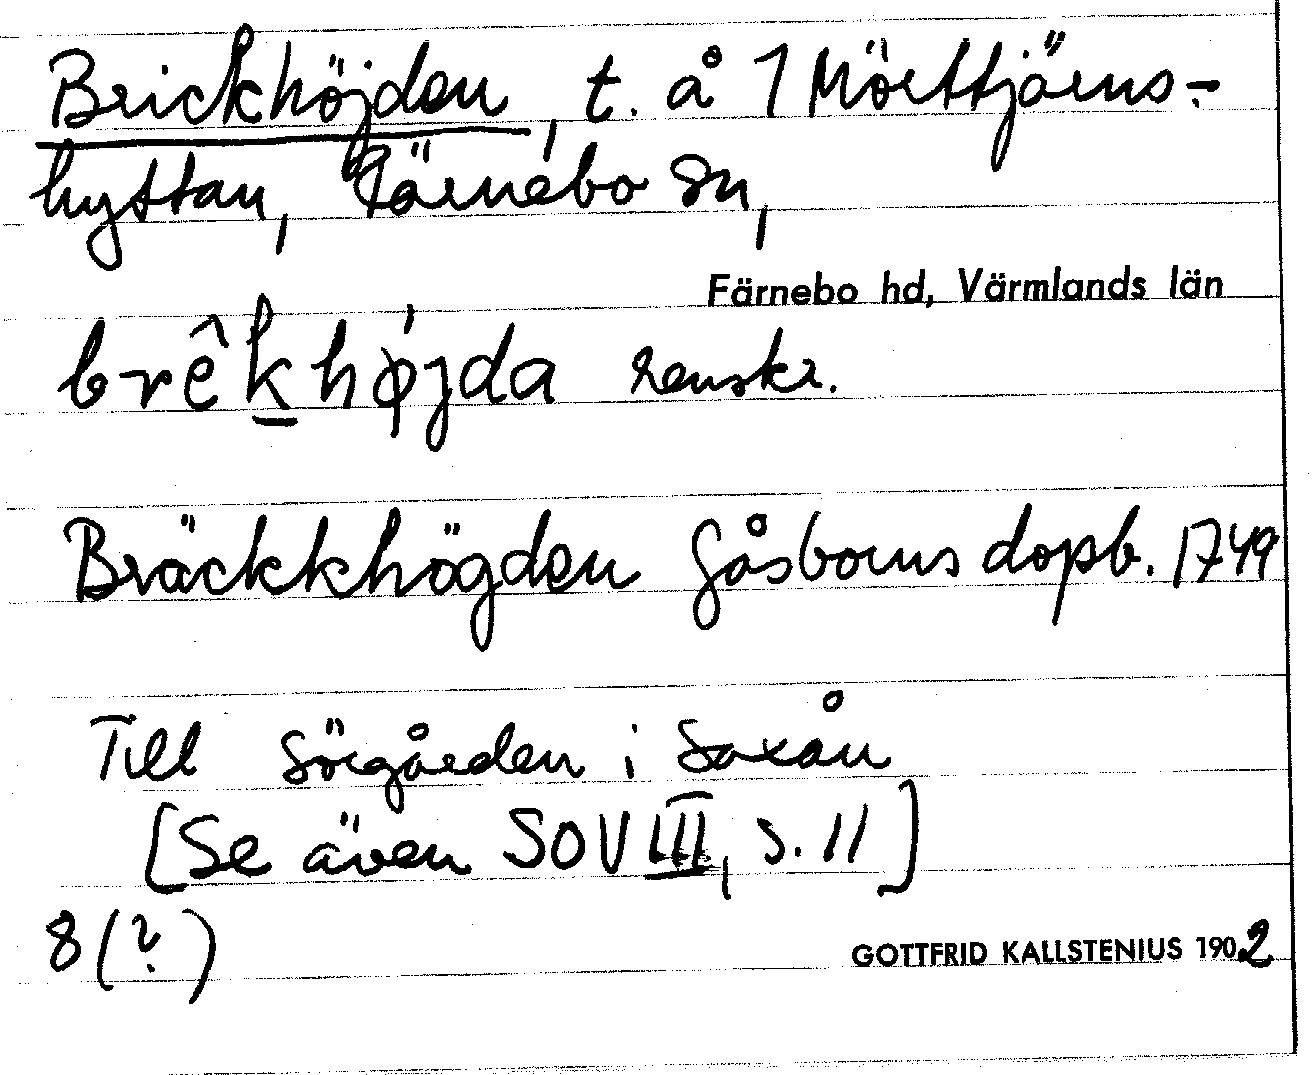 Brickhöjden, t. å 1 Mörttjärns-
hyttan, Färnebo sn,
Färnebo hd, Värmlands län
brêk̠hǿjda renskr.
Bräckkhögden Gåsborns dopb. 1749
Till Sörgården i Saxån
[Se även SOV III, s. 11]
8 (?)
GOTTFRID KALLSTENIUS 1902